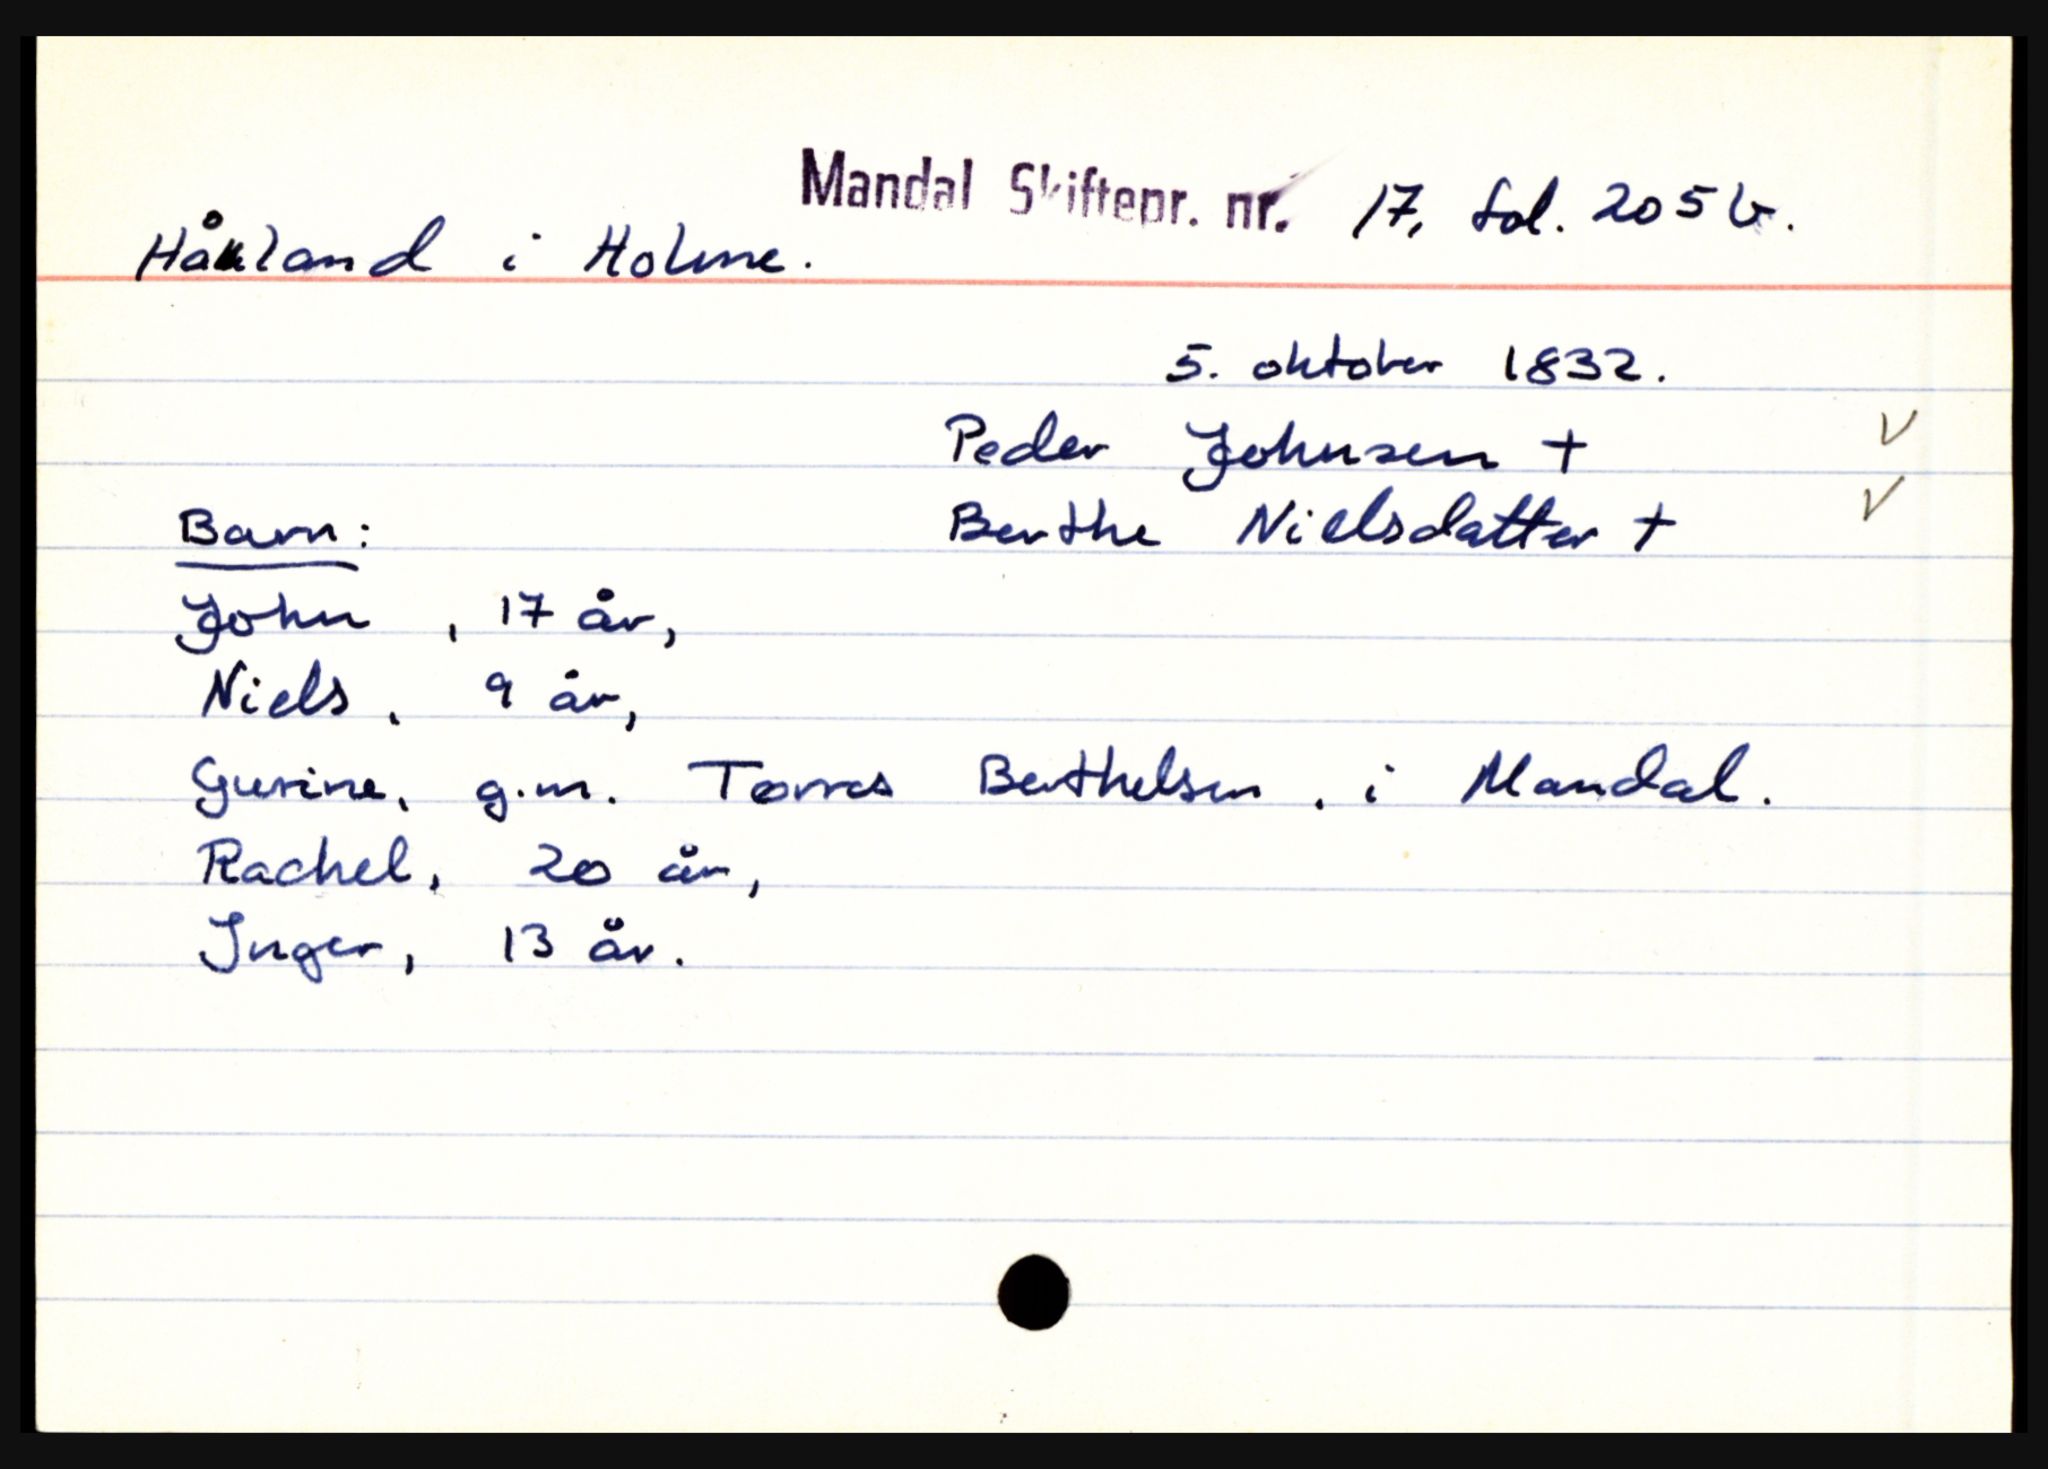 Mandal Skiftepr. nr. 17, fol. 205 b.
Håkland i Holme.
5. oktober 1832.
Peder Johnsen +
Berthe Nielsdatter +
Barn:
John , 17 år,
Niels , 9 år,
Gurine, g.m. Tørres Berthelsen , i Mandal.
Rachel, 20 år,
Inger, 13 år.